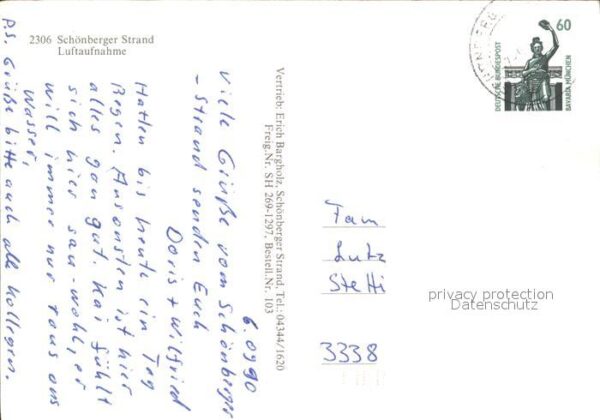 2306 Schönberger Strand
Luftaufnahme
6.09.90
Viele Grüße vom Schönberger
- Strand senden Euch
Doris + Wilfried
Hatten bis heute ein Tag
Regen. Ansonsten ist hier
alles gan gut. Kai fühlt
sich hier sau-wohl, er
will immer nur raus ans
Wasser,
P.S. Grüße bitte auch alle Kollegen.
Vertrieb: Erich Bargholz, Schönberger Strand, Tel.: 04344/1620
Freig. Nr. SH 269-1297, Bestell.Nr. 103
60
DEUTSCHE BUNDESPOST
BAVARIA MÜNCHEN
Fam
Lutz
Stetti
3338
privacy protection
Datenschutz